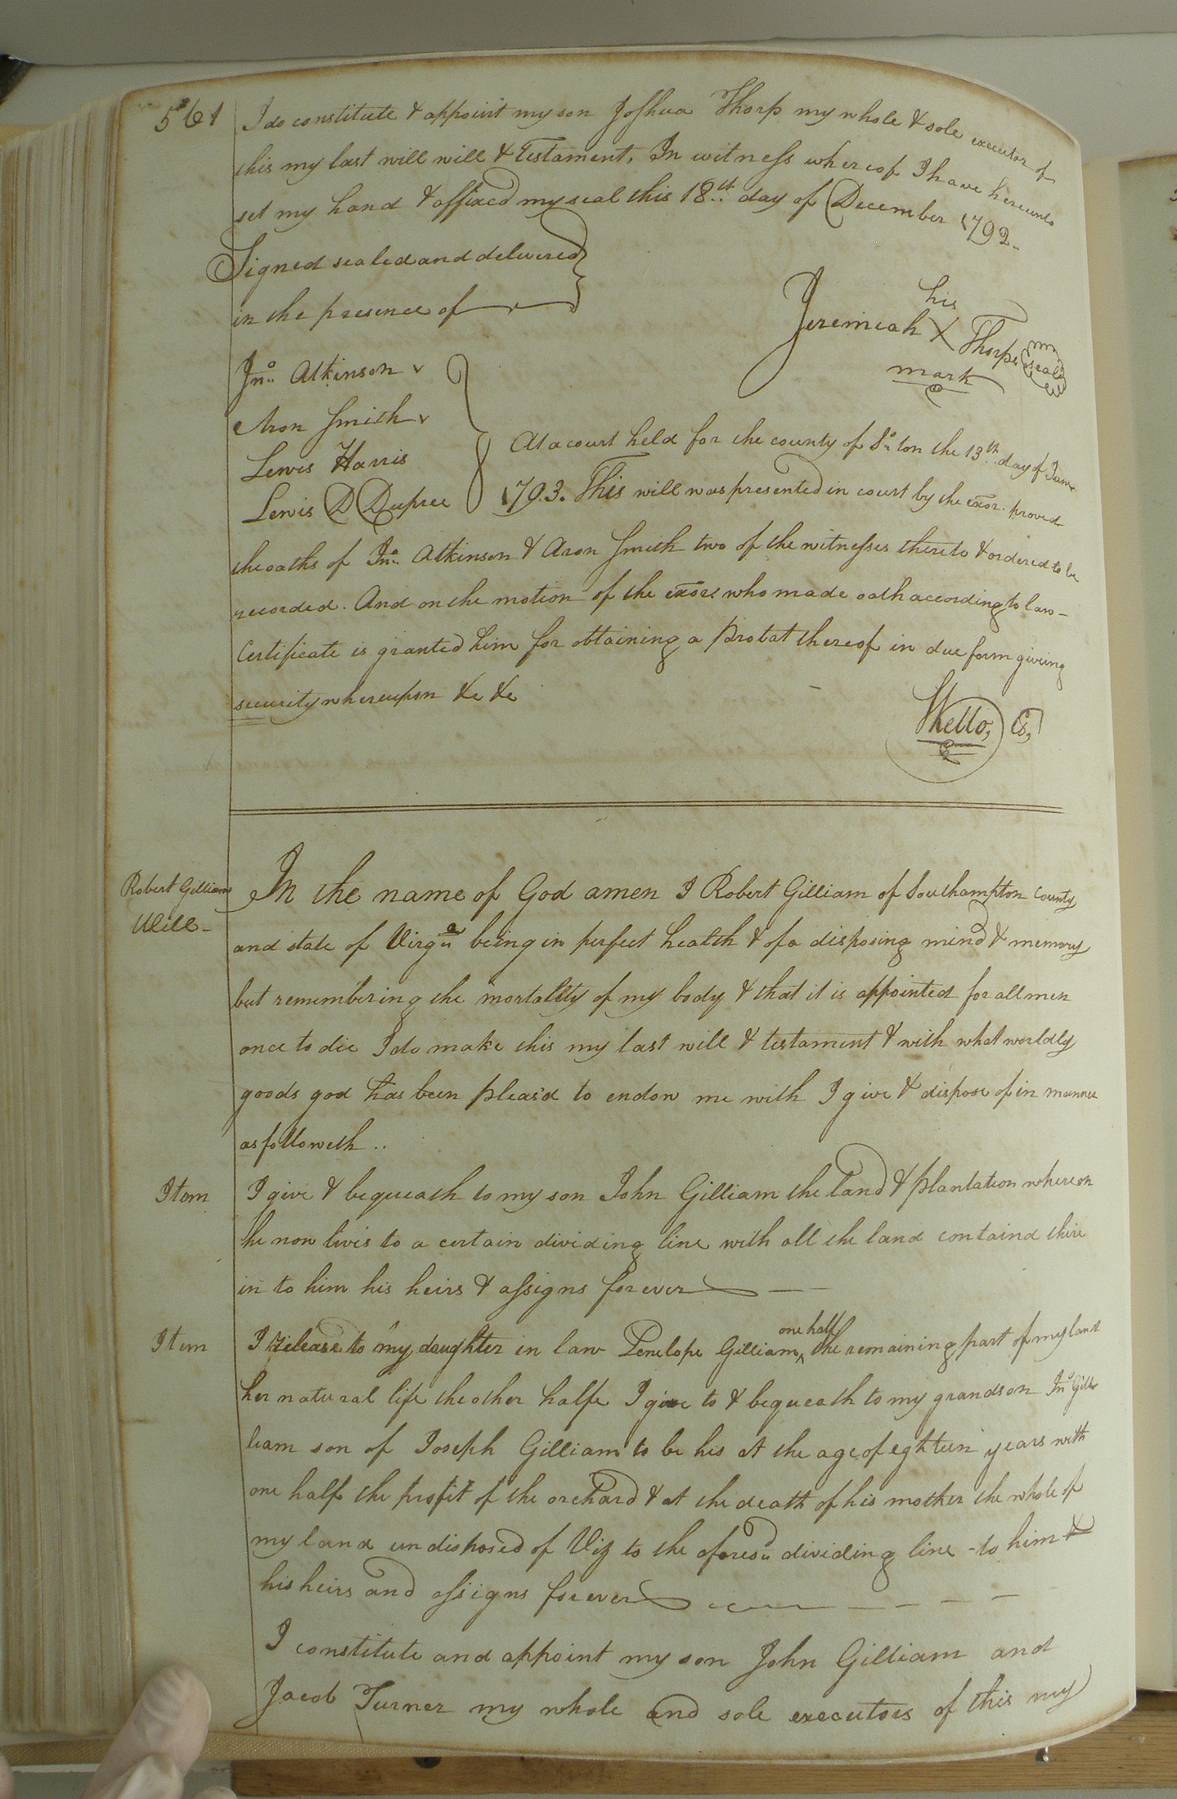 561
I do constitute & appoint my son Joshua Thorp my whole & sole executor of
this my last will will & Testament, In witness whereof I have hereunto
set my hand & affixed my seal this 18th day of December 1792.
Signed sealed and delivered
in the presence of
Jno. Atkinson
Aron Smith
Lewis Harris
Lewis D Dupree
his
Jeremiah X Thorpe seal
mark
At a court held for the county of So.ton the 13th day of June
1793. This will was presented in court by the exor. proved
the oaths of Jno. Atkinson & Aron Smith two of the witnesses thereto & ordered to be
recorded. And on the motion of the exors who made oath according to law
Certificate is granted him for obtaining a Probat thereof in due form giving
security whereupon &c &c
Skello, Cs,
Robert Gilliam
Will
In the name of God amen I Robert Gilliam of Southampton County
and state of Virga being in perfect health & of a disposing mind & memory
but remembering the mortality of my body & that it is appointed for all men
once to die I do make this my last will & testament & with what worldly
goods god has been pleas'd to endow me with I give & dispose of in manner
as followeth..
Item I give & bequeath to my son John Gilliam the land & plantation whereon
he now lives to a certain dividing line with all the land containd there
in to him his heirs & assigns forever
Item I release to my daughter in law Penelope Gilliam one half the remaining part of my land
her natural life the other halfe I give to & bequeath to my grandson Jno Gill
liam son of Joseph Gilliam to be his at the age of eghteen years with
one half the profit of the orchard & at the death of his mother the whole of
my land undisposed of Viz to the aforesd dividing line - to him &
his heirs and assigns forever
I constitute and appoint my son John Gilliam and
Jacob Turner my whole and sole executors of this my